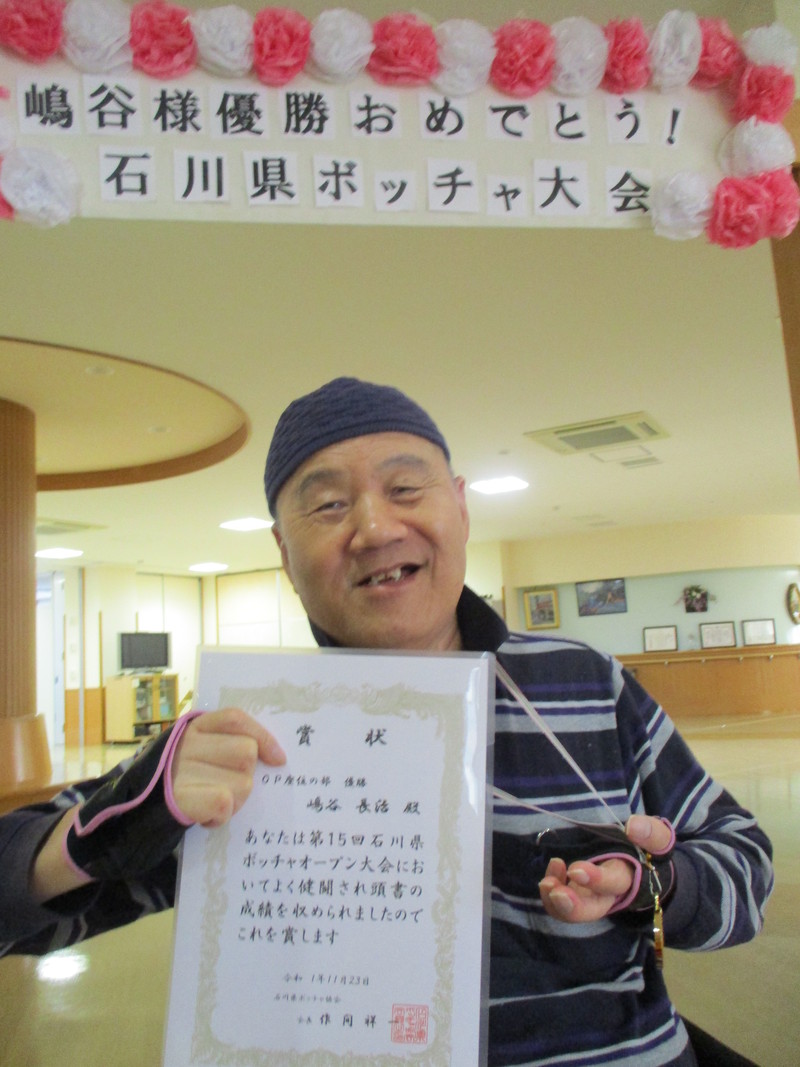 嶋谷様優勝おめでとう!
石川県ボッチャ大会
賞 状
OP座位の部 優勝
嶋谷 長治 殿
あなたは第15回石川県
ボッチャオープン大会にお
いてよく健闘され頭書の
成績を収められましたので
これを賞します
令和 1年11月23日
石川県ボッチャ協会
会長